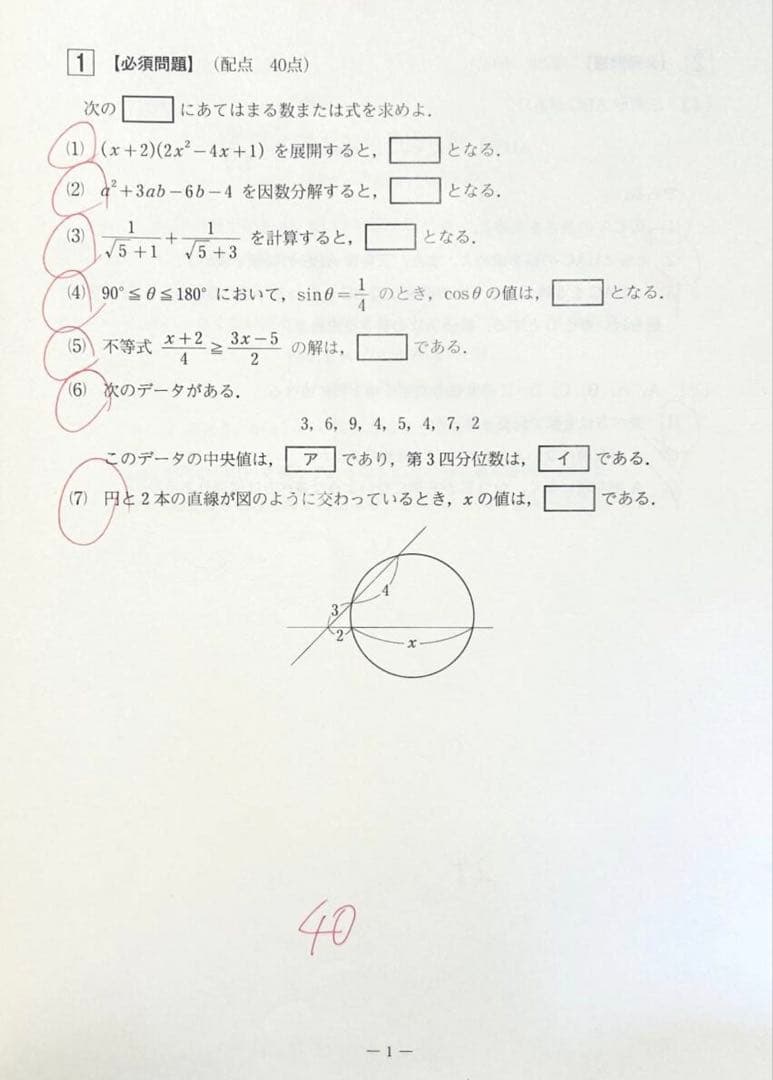 1 【必須問題】 (配点 40点)
次の□にあてはまる数または式を求めよ.
(1) (x+2)(2x²−4x+1) を展開すると, □となる.
(2) a²+3ab−6b−4 を因数分解すると, □となる.
(3) 1/(√5+1) + 1/(√5+3) を計算すると, □となる.
(4) 90°≦θ≦180° において, sinθ=1/4 のとき, cosθの値は, □となる.
(5) 不等式 (x+2)/4 ≧ (3x−5)/2 の解は, □である.
(6) 次のデータがある.
3, 6, 9, 4, 5, 4, 7, 2
このデータの中央値は, ア であり, 第3四分位数は, イ である.
(7) 円と2本の直線が図のように交わっているとき, xの値は, □である.
4
3
2
x
40
— 1 —